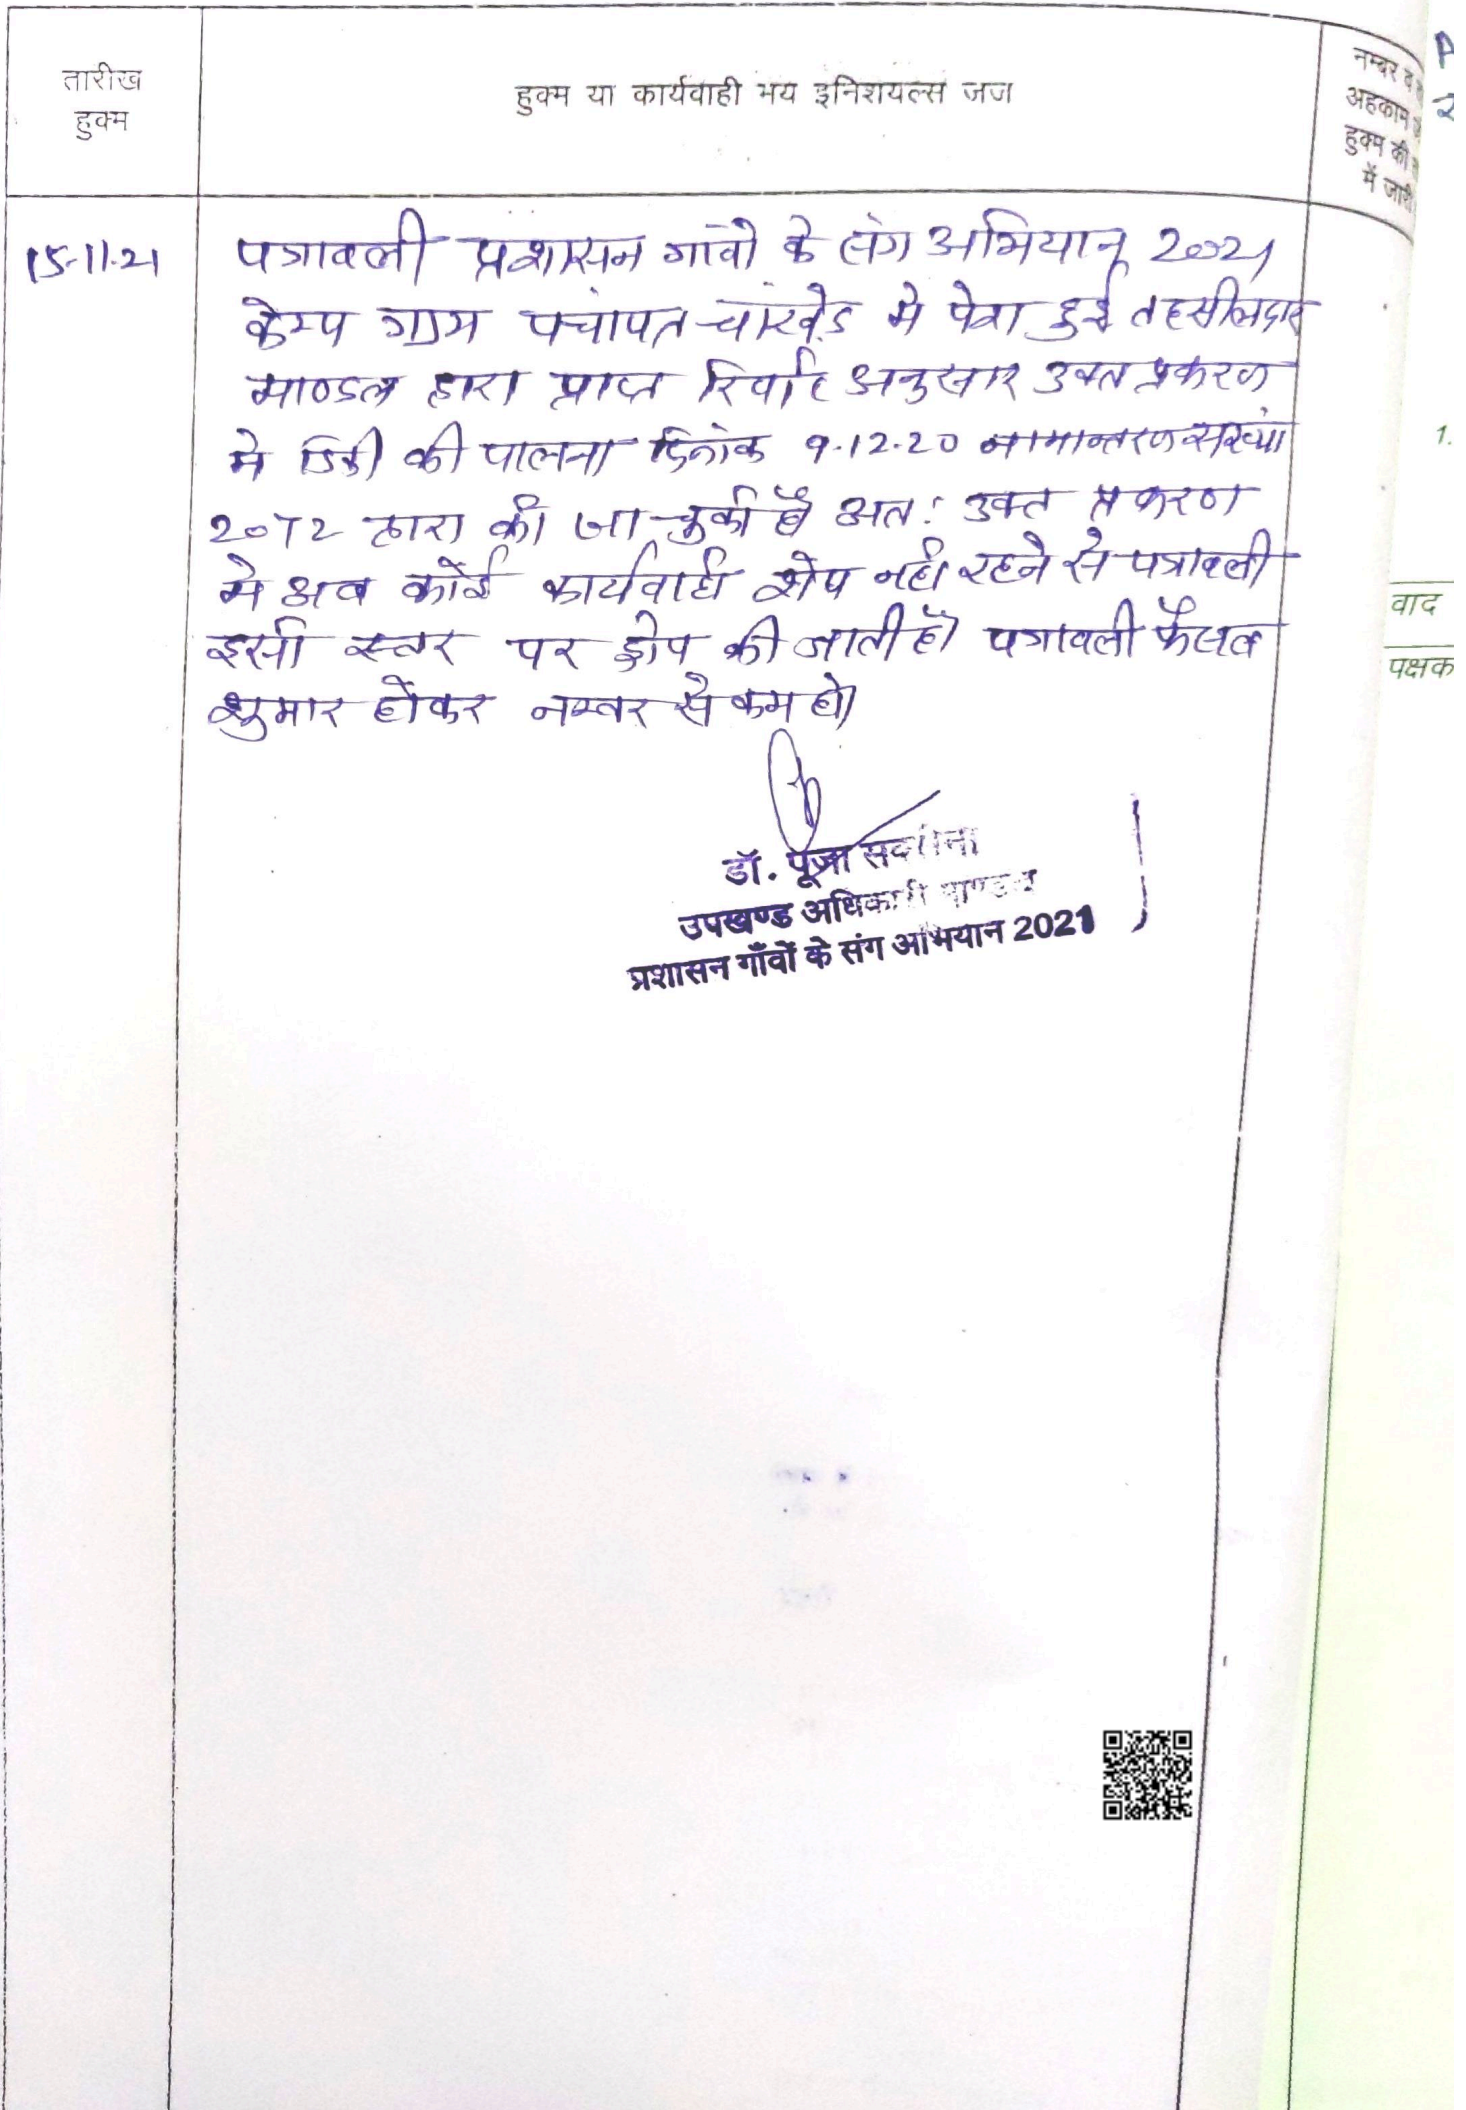 तारीख
हुक्म
हुक्म या कार्यवाही मय इनिशयल्स जज
नम्बर व
अहकाम
हुक्म की
में जारी
15-11-21
पत्रावली प्रशासन गांवो के संग अभियान 2021
केम्प ग्राम पंचायत चांखेड मे पेश हुई तहसीलदार
माण्डल द्वारा प्राप्त रिर्पोट अनुसार उक्त प्रकरण
मे डिक्री की पालना दिनांक 9-12-20 नामान्तरण संख्या
2072 द्वारा की जा चुकी है अतः उक्त प्रकरण
मे अब कोई कार्यवाही शेष नही रहने से पत्रावली
इसी स्तर पर ड्रोप की जाती है। पत्रावली फैसल
शुमार होकर नम्बर से कम हो।
डॉ. पूजा सक्सेना
उपखण्ड अधिकारी माण्डल
प्रशासन गाँवों के संग अभियान 2021
1.
वाद
पक्षक